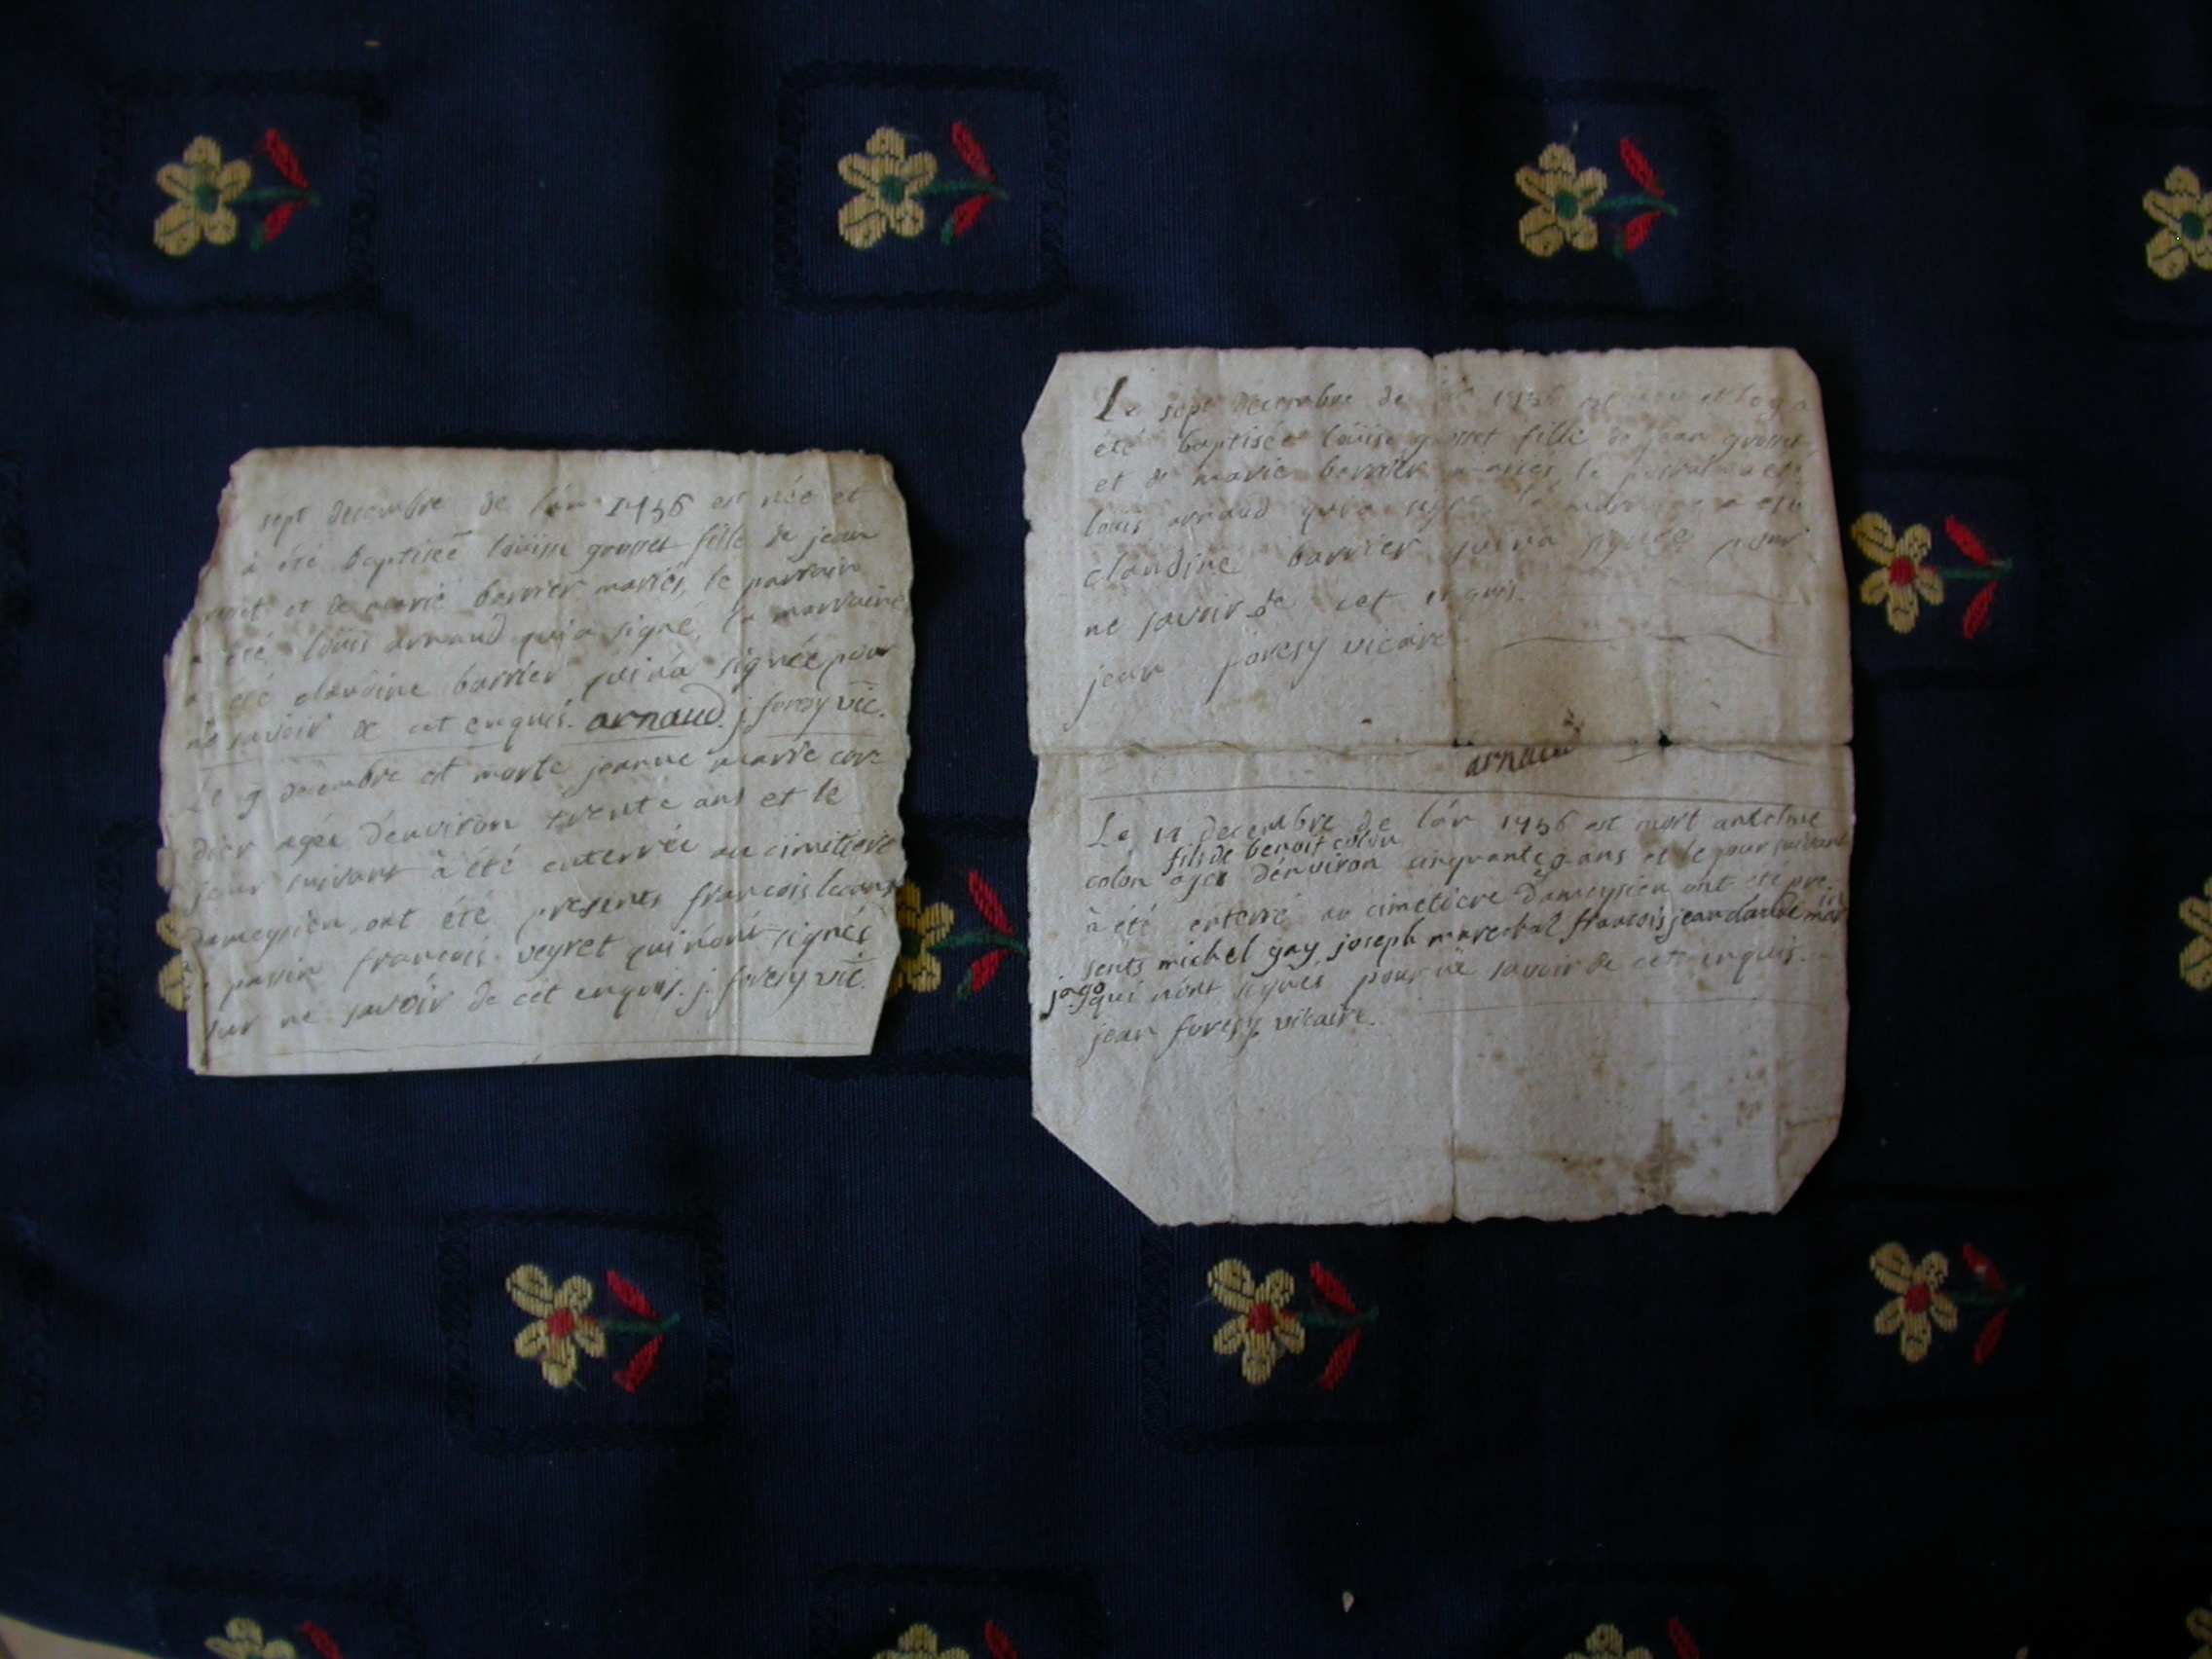 sept decembre de l'an 1756 est née et
à été baptisée loüise grosset fille de jean
et de marie barrier mariés, le parrain
a été loüis arnaud qui a signé, la marraine
a été claudine barrier qui n'a signée pour
ne savoir de cet enquis. arnaud. j foresy vic.
Le 9 decembre est morte jeanne marie cor
dier agée d'environ trente ans et le
jour suivant à été enterrée au cimitiere
dameysien, ont été presents francois
francois veyret qui n'ont signés
pour ne savoir de cet enquis. j. foresy vic.
Le sept decembre de l'an 1756
été baptisée loüise grosset fille de jean grosset
et de marie barrier mariés, le
louis arnaud qui a signé la marraine a été
claudine barrier qui n'a signée pour
ne savoir de cet enquis.
jean foresy vicaire
arnaud
Le 12 decembre de l'an 1756 est mort antelme
fils de benoit colon
colon agé d'environ cinquante ans et le jour suivant
à été enterré au cimetiere dameysien ont été pre
sents michel gay, joseph marechal francois jean claude mar
jago qui n'ont signés pour ne savoir de cet enquis.
jean foresy vicaire.